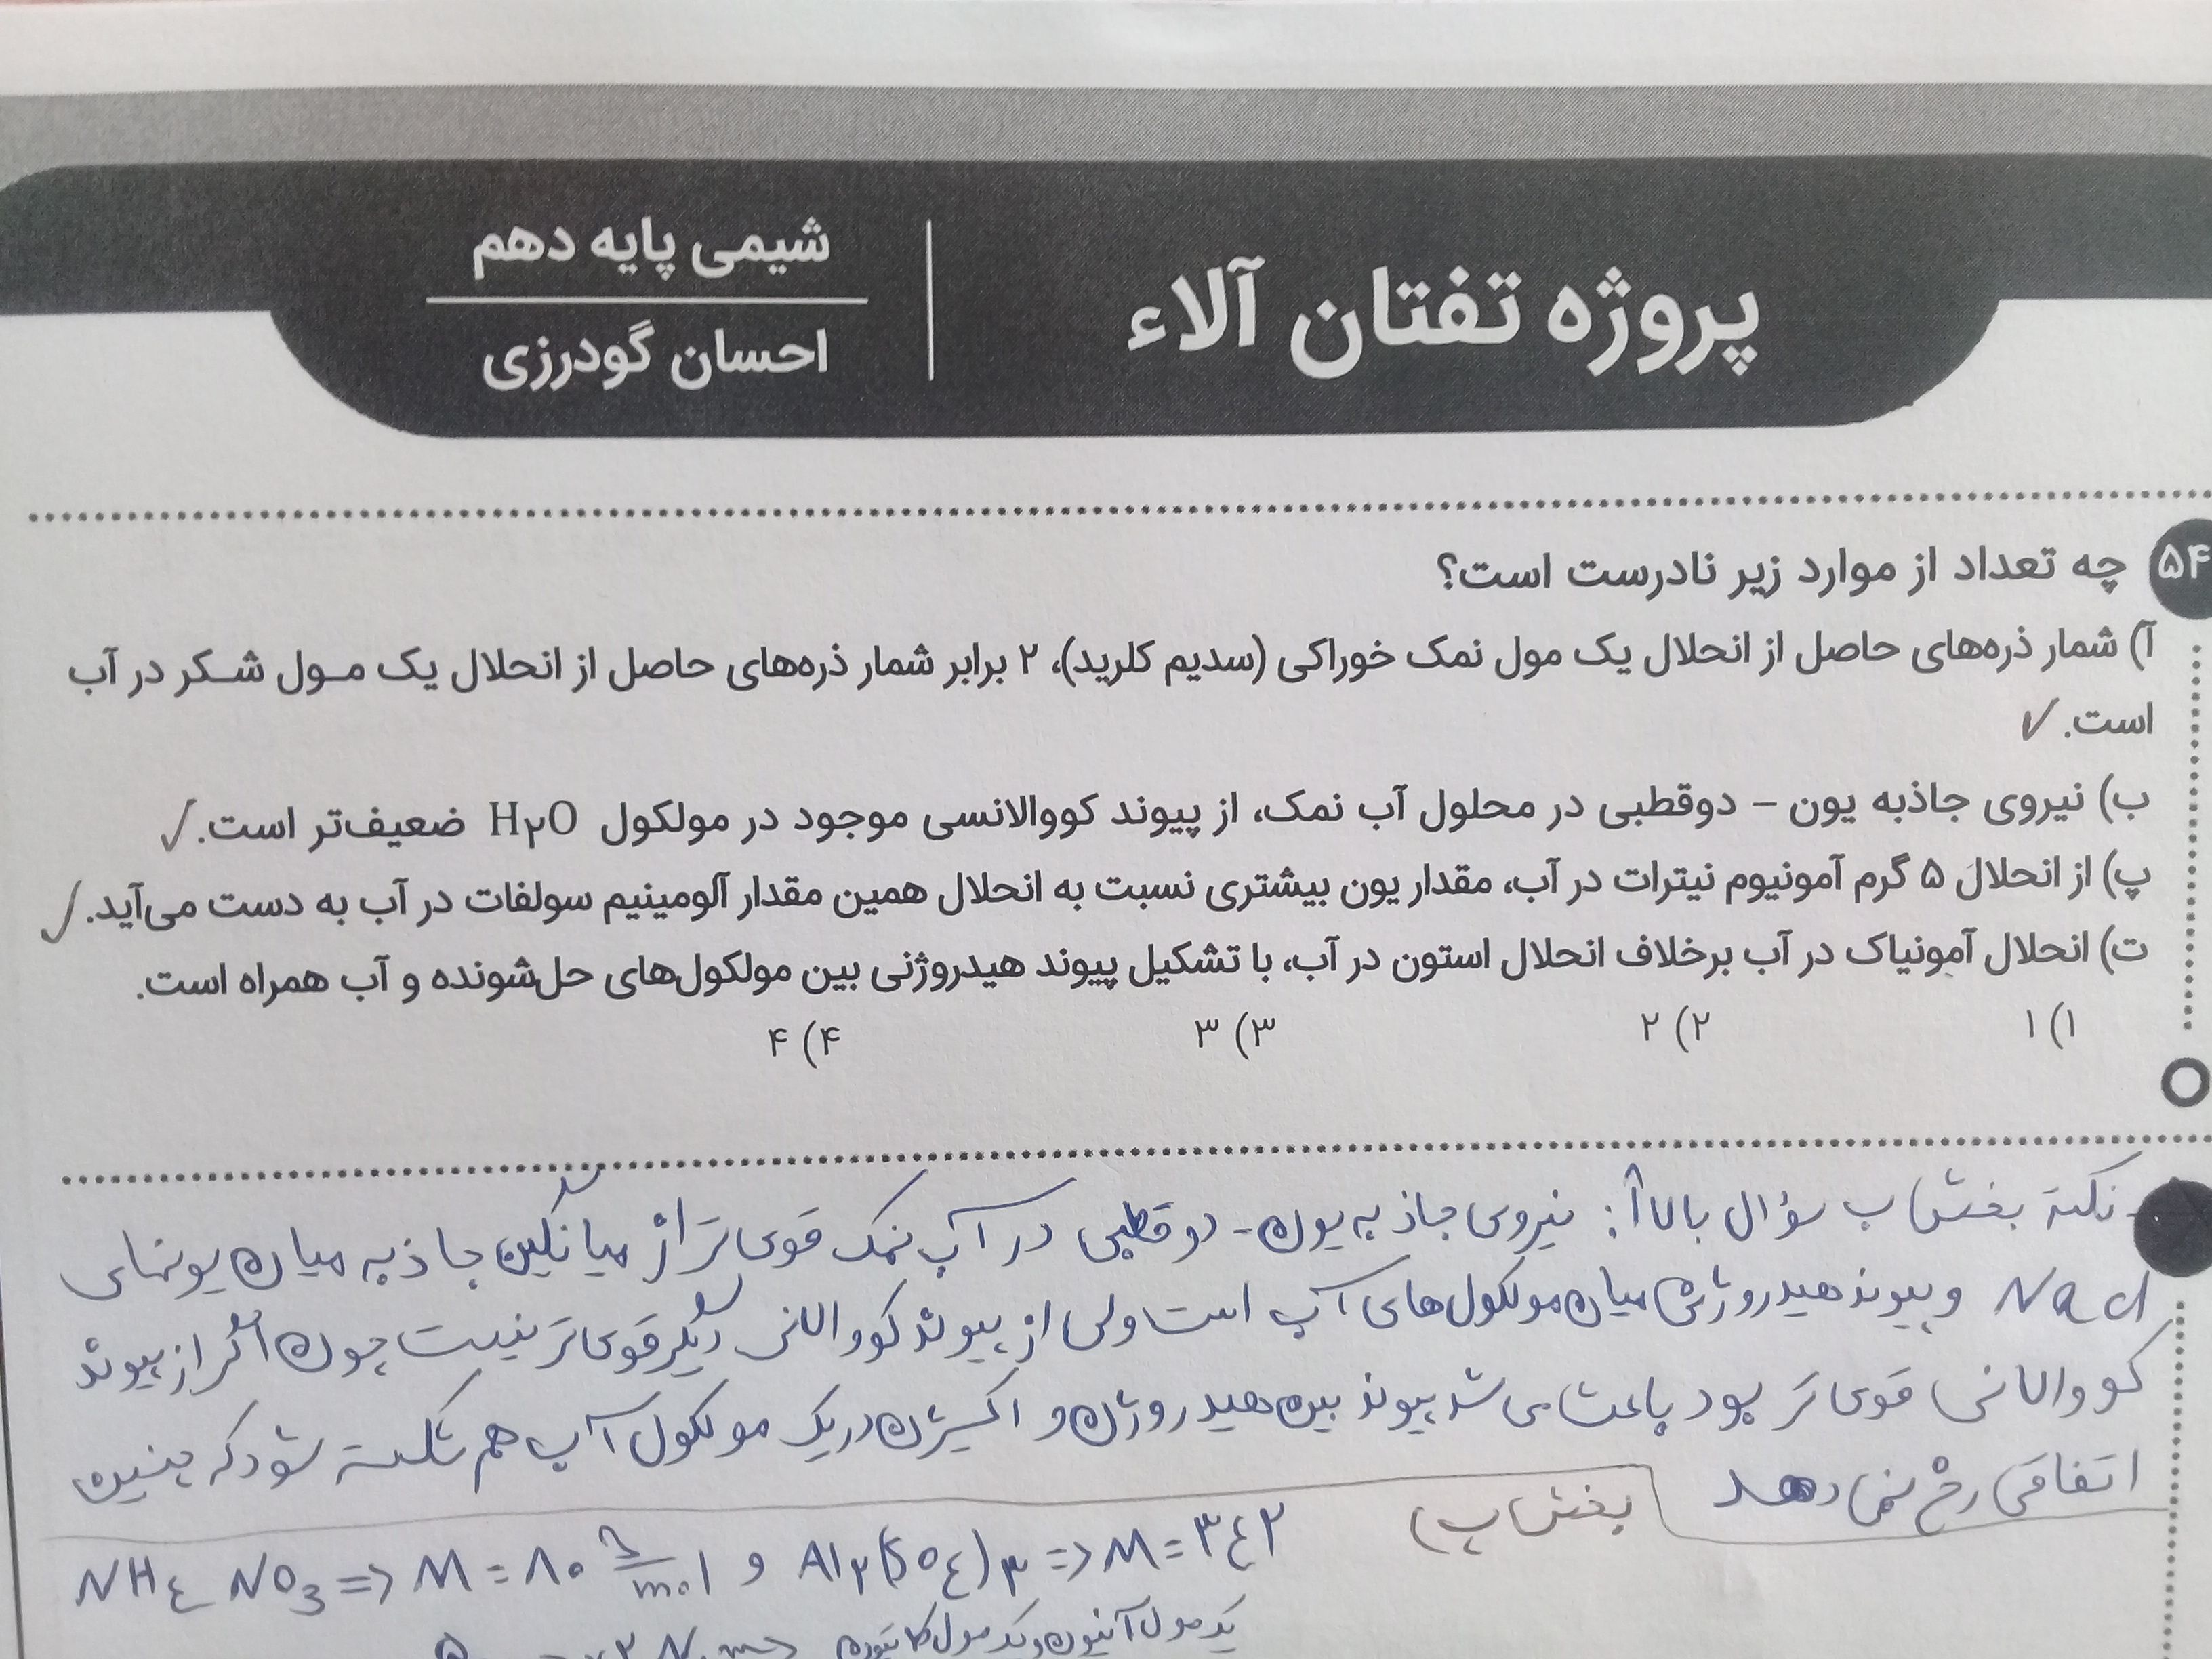 پروژه تفتان آلاء
شیمی پایه دهم
احسان گودرزی
۵۴ چه تعداد از موارد زیر نادرست است؟
آ) شمار ذره‌های حاصل از انحلال یک مول نمک خوراکی (سدیم کلرید)، ۲ برابر شمار ذره‌های حاصل از انحلال یک مول شکر در آب
است. ✓
ب) نیروی جاذبه یون – دوقطبی در محلول آب نمک، از پیوند کووالانسی موجود در مولکول H۲O ضعیف‌تر است. ✓
پ) از انحلال ۵ گرم آمونیوم نیترات در آب، مقدار یون بیشتری نسبت به انحلال همین مقدار آلومینیم سولفات در آب به دست می‌آید. ✓
ت) انحلال آمونیاک در آب برخلاف انحلال استون در آب، با تشکیل پیوند هیدروژنی بین مولکول‌های حل‌شونده و آب همراه است.
۱) ۱ ۲) ۲ ۳) ۳ ۴) ۴
نکتهٔ بخش ب سؤال بالا: نیروی جاذبه یون - دوقطبی در آب نمک قوی‌تر از میانگین جاذبه میان یونهای
NaCl و پیوند هیدروژنی میان مولکول‌های آب است ولی از پیوند کووالانسی دیگر قوی‌تر نیست چون اگر از پیوند
کووالانسی قوی‌تر بود باعث می‌شد پیوند بین هیدروژن و اکسیژن در یک مولکول آب هم شکسته شود که چنین
اتفاقی رخ نمی‌دهد
بخش پ)
NH۴ NO3 => M = ۸۰ g/mol و Al۲(SO۴)۳ => M = ۳۴۲
یک مول آنیون و یک مول کاتیون